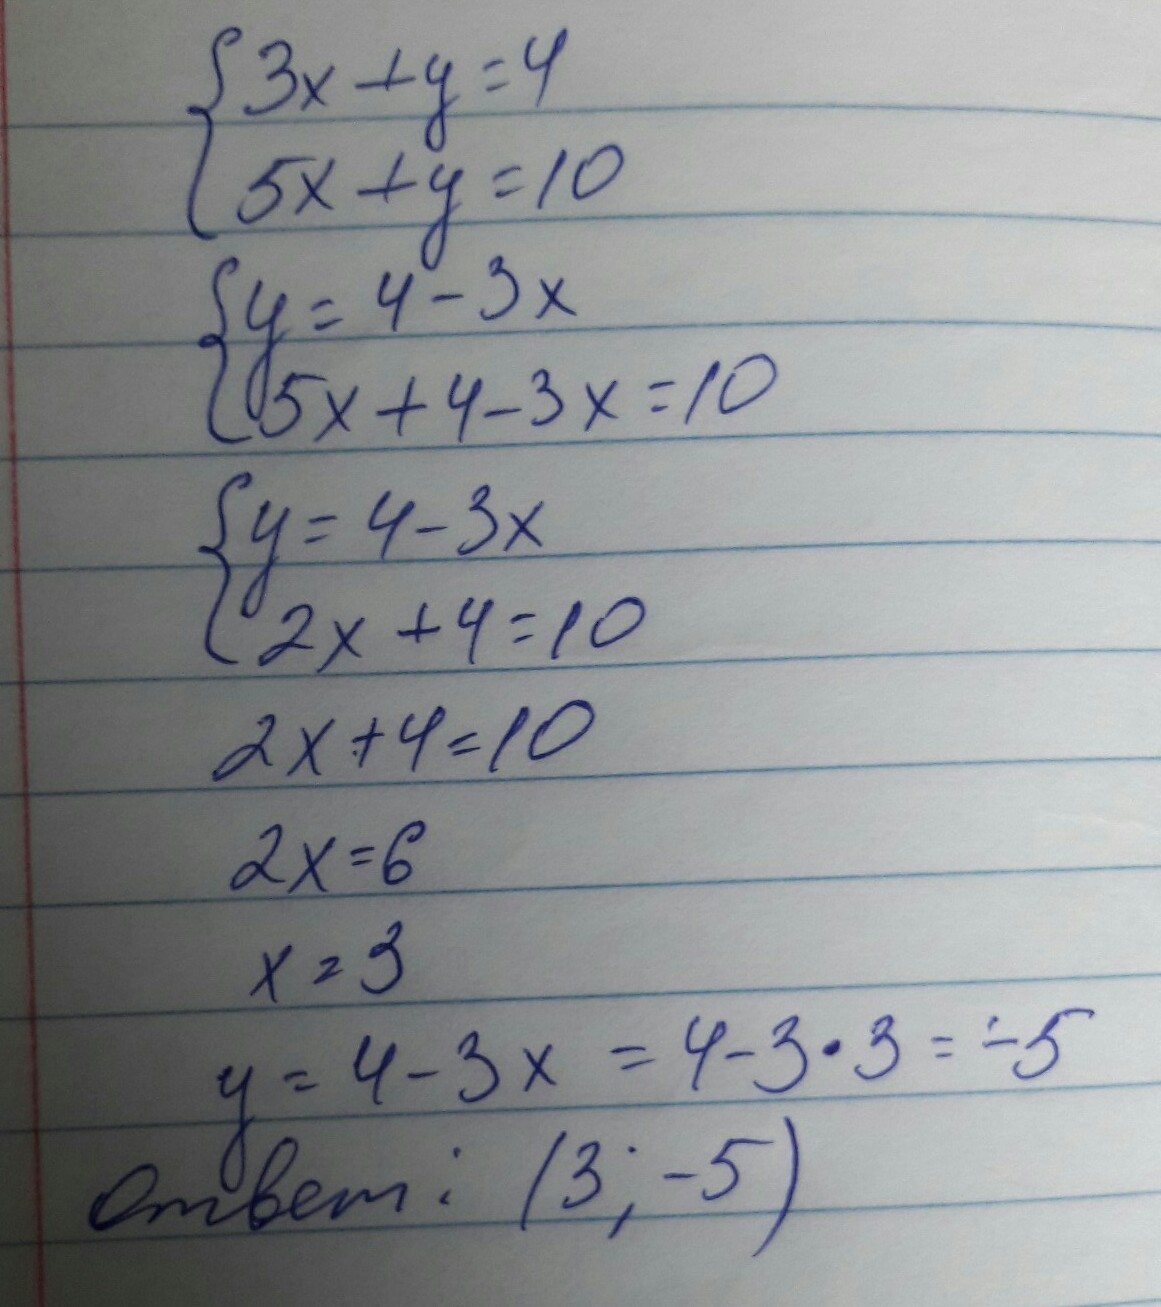 {3x+y=4
5x+y=10
{y=4-3x
5x+4-3x=10
{y=4-3x
2x+4=10
2x+4=10
2x=6
x=3
y=4-3x=4-3·3=-5
Ответ: (3;-5)